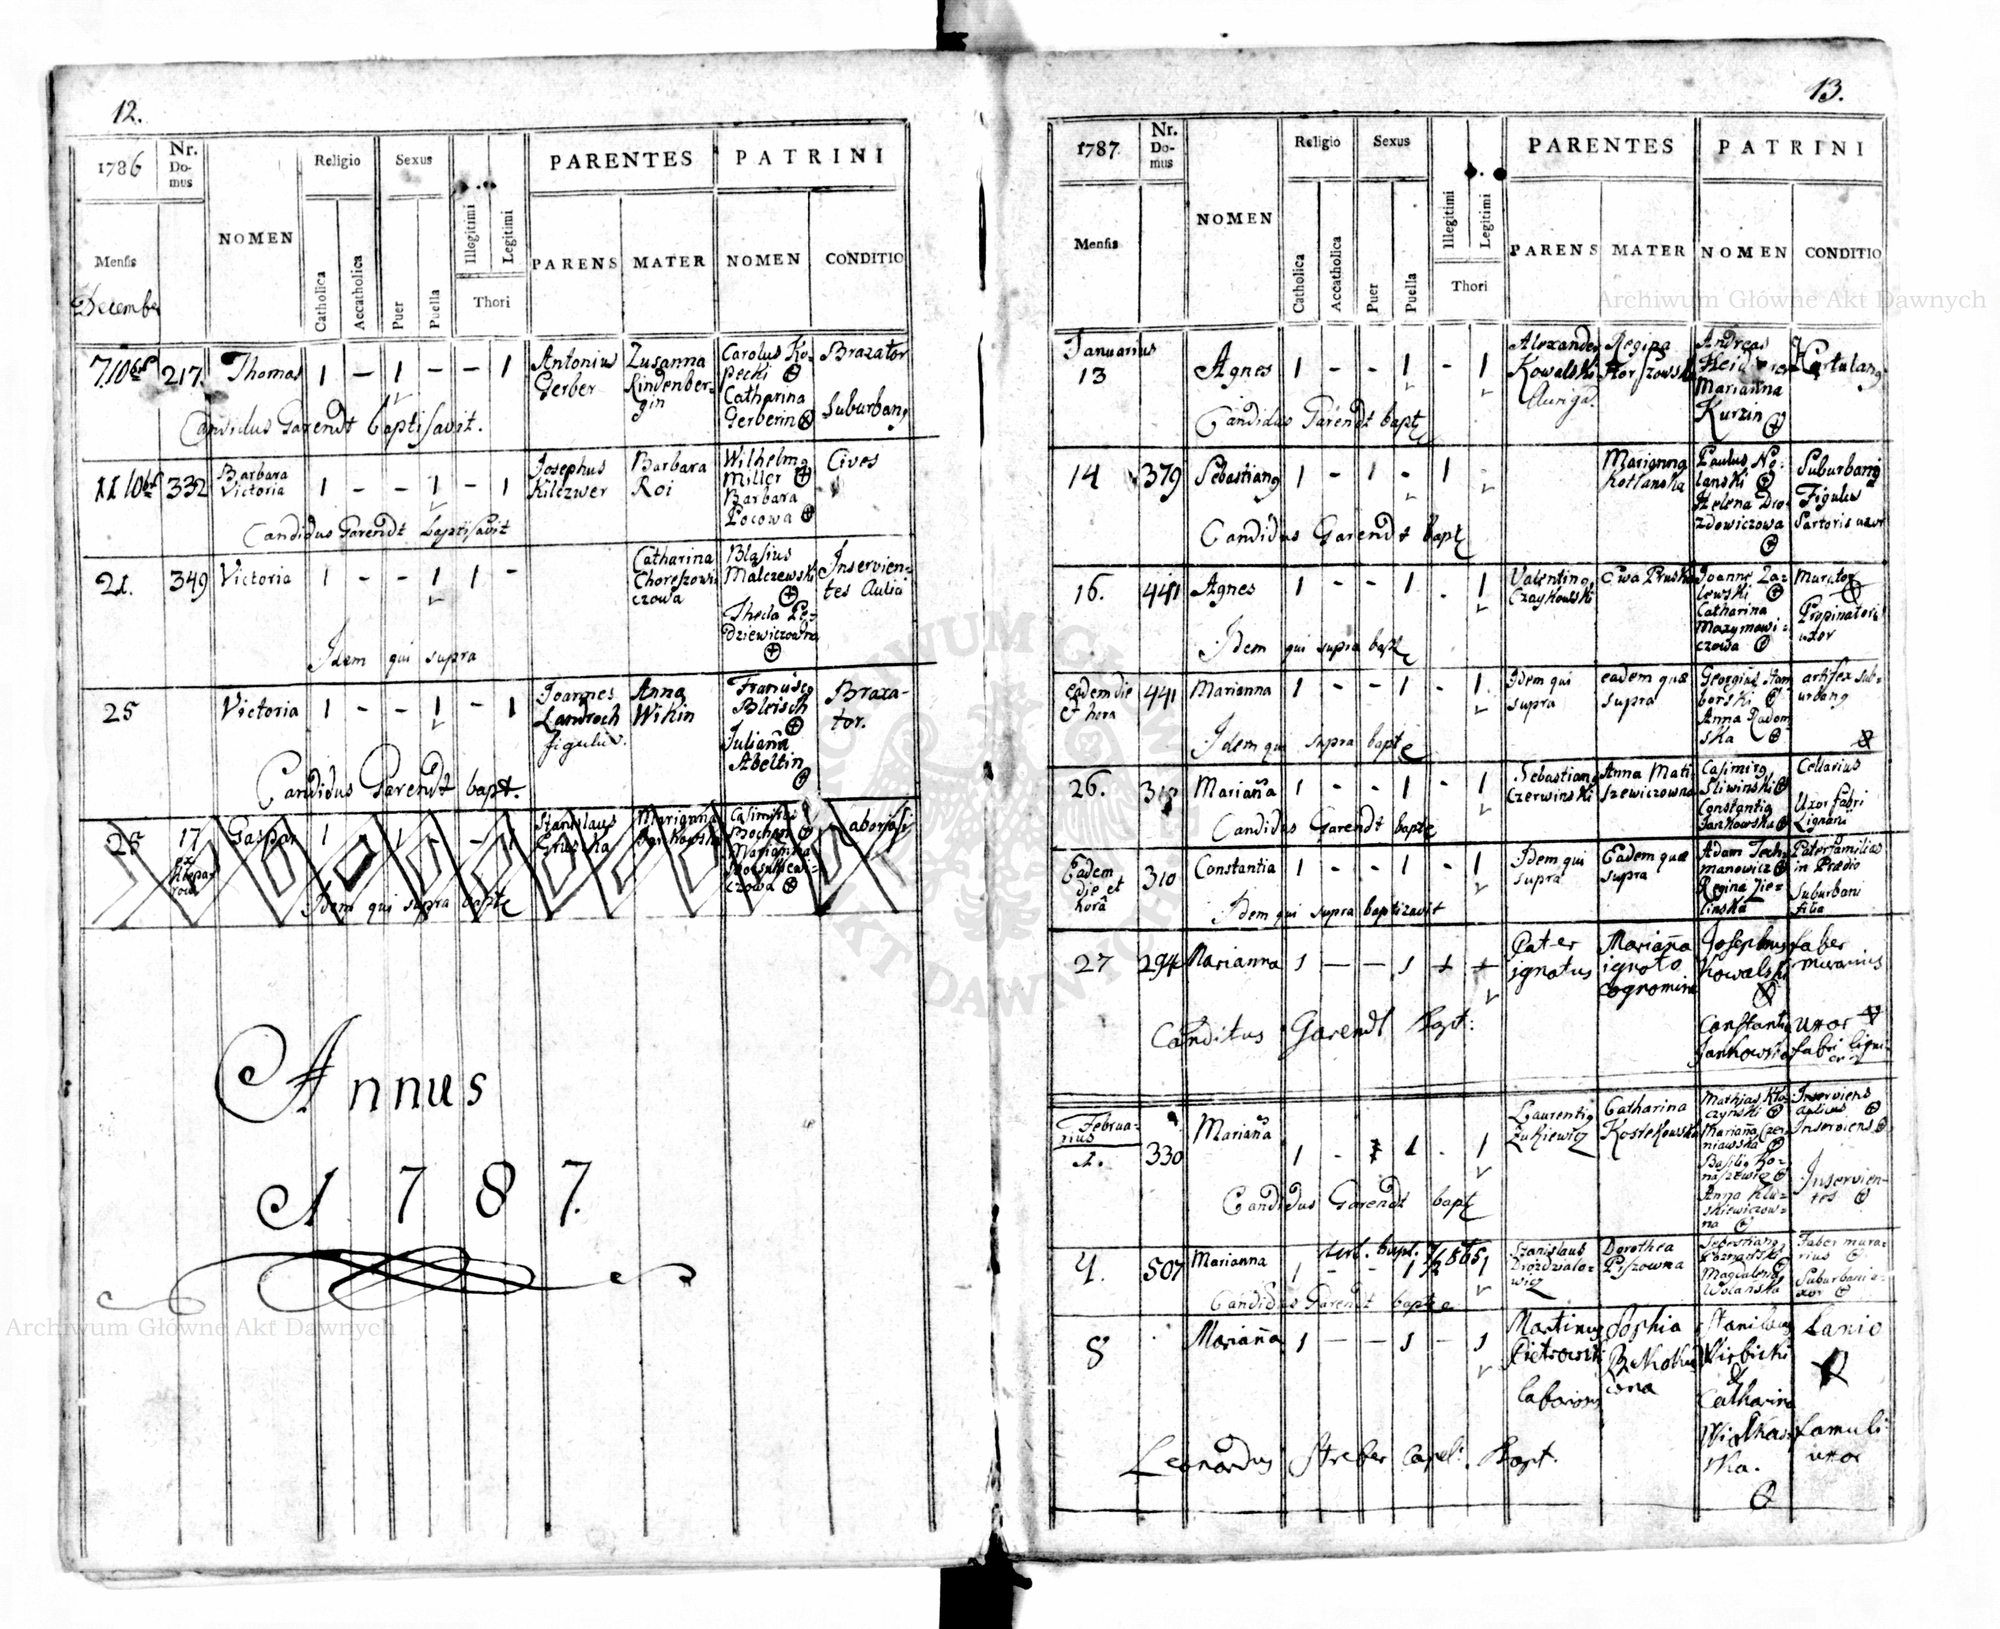 12.
1786
Nr. Domus
NOMEN
Religio
Sexus
PARENTES
PATRINI
Mensis
December
Catholica
Accatholica
Puer
Puella
Illegitimi
Legitimi
Thori
PARENS
MATER
NOMEN
CONDITIO
7 10bris 217. Thomas 1 – 1 – – 1 Antonius Gerber Zusanna Lindenbergin Carolus Kopecki Catharina Gerberin Braxator Suburbang
Candidus Garendt baptisavit.
11 10bris 332 Barbara Victoria 1 – – 1 – 1 Josephus Kilczwer Barbara Roi Wilhelmg Miller Barbara Pocowa Cives
Candidus Garendt baptisavit
21. 349 Victoria 1 – – 1 1 – Catharina Blasius Malczewski Thecla Inservientes Aulici
Idem qui supra
25 Victoria 1 – – 1 – 1 Joannes Landroch figulus. Anna Wikin Franciscg Bleisch Juliana Abeltin Braxator.
Candidus Garendt bapt.
25 17 Gaspar 1 1 – 1 Stanislaus Marianna Casimirus Marianna
Idem qui supra bapt
Annus
1787.
13.
1787
Nr. Domus
NOMEN
Religio
Sexus
PARENTES
PATRINI
Mensis
Catholica
Accatholica
Puer
Puella
Illegitimi
Legitimi
Thori
PARENS
MATER
NOMEN
CONDITIO
Januarius
13 Agnes 1 – – 1 – 1 Alexander Kowalski Auriga. Regina Andreas Marianna Kurzin
Candidus Garendt bapt
14 379 Sebastiang 1 – 1 – 1 Marianna Kotlanska Paulus Nolanski Helena Drozdowiczowa Suburbang Figulus Sartoris uxor
Candidus Garendt bapt
16. 441 Agnes 1 – – 1 . 1 Valenting Czaykowski Ewa Pruska Joanne Zalewski Catharina Maxymowiczowa Murator Propinatoris uxor
Idem qui supra bapt
Eadem die et hora 441 Marianna 1 – – 1 – 1 Idem qui supra eadem quæ supra Georgius Stamborski Anna Radomska artifex suburbang
Idem qui supra bapt
26. 310 Mariana 1 – – 1 – 1 Sebastiang Czerwinski Anna Matiszewiczowna Casimirg Sliwinski Constantia Jankowska Cellarius Uxor fabri Lignarii
Candidus Garendt bapt
Eadem die et horâ 310 Constantia 1 – – 1 – 1 Idem qui supra Eadem quæ supra Adam Techmanowicz Regina Zielinska Paterfamilias in Prædio Suburbani filia
Idem qui supra baptizavit
27 294 Marianna 1 – – 1 + + Pater ignotus Mariana ignoto cognomine Josephus Kowalski Constantia Jankowska faber murarius Uxor fabri
Canditus Garendt Bapt:
Februarius
1. 330 Mariana 1 – 1 . 1 Laurentig Zukiewicz Catharina Kostekowska Mathias Mariana Basilig Anna Inserviens aulicus Inserviens Inservientes
Candidus Garendt bapt
4. 507 Marianna 1 – – 1 1 Stanislaus Dorothea Piszowna Sebastiang Magdalena Wolanska Faber murarius Suburbani uxor
Candidus Garendt bapt
8 Mariana 1 – – 1 – 1 Martinus Pietrowski laborios Sophia Stanislaus Wirbicki & Catharina Lanio famuli uxor
Leonardus Streber Capel: Bapt.
Archiwum Główne Akt Dawnych
Archiwum Główne Akt Dawnych
ARCHIWUM GŁÓWNE AKT DAWNYCH